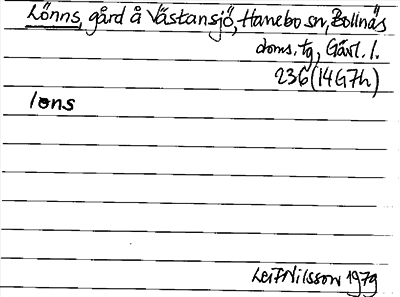 Lönns, gård å Västansjö, Hanebo sn, Bollnäs
doms. tg, Gävl. l.
236 (14G7h)
lons
Leif Nilsson 1979